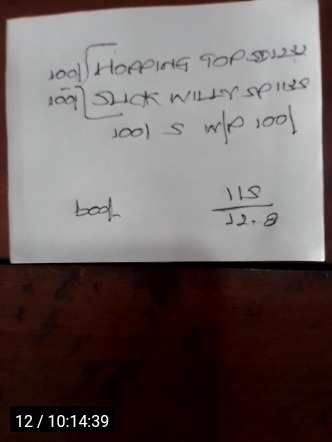 100/ HOPPING TOP SD1232
100/ SLICK WILLY SP1135
100/ S W/P 100/
600/-
115
12.8
12 / 10:14:39